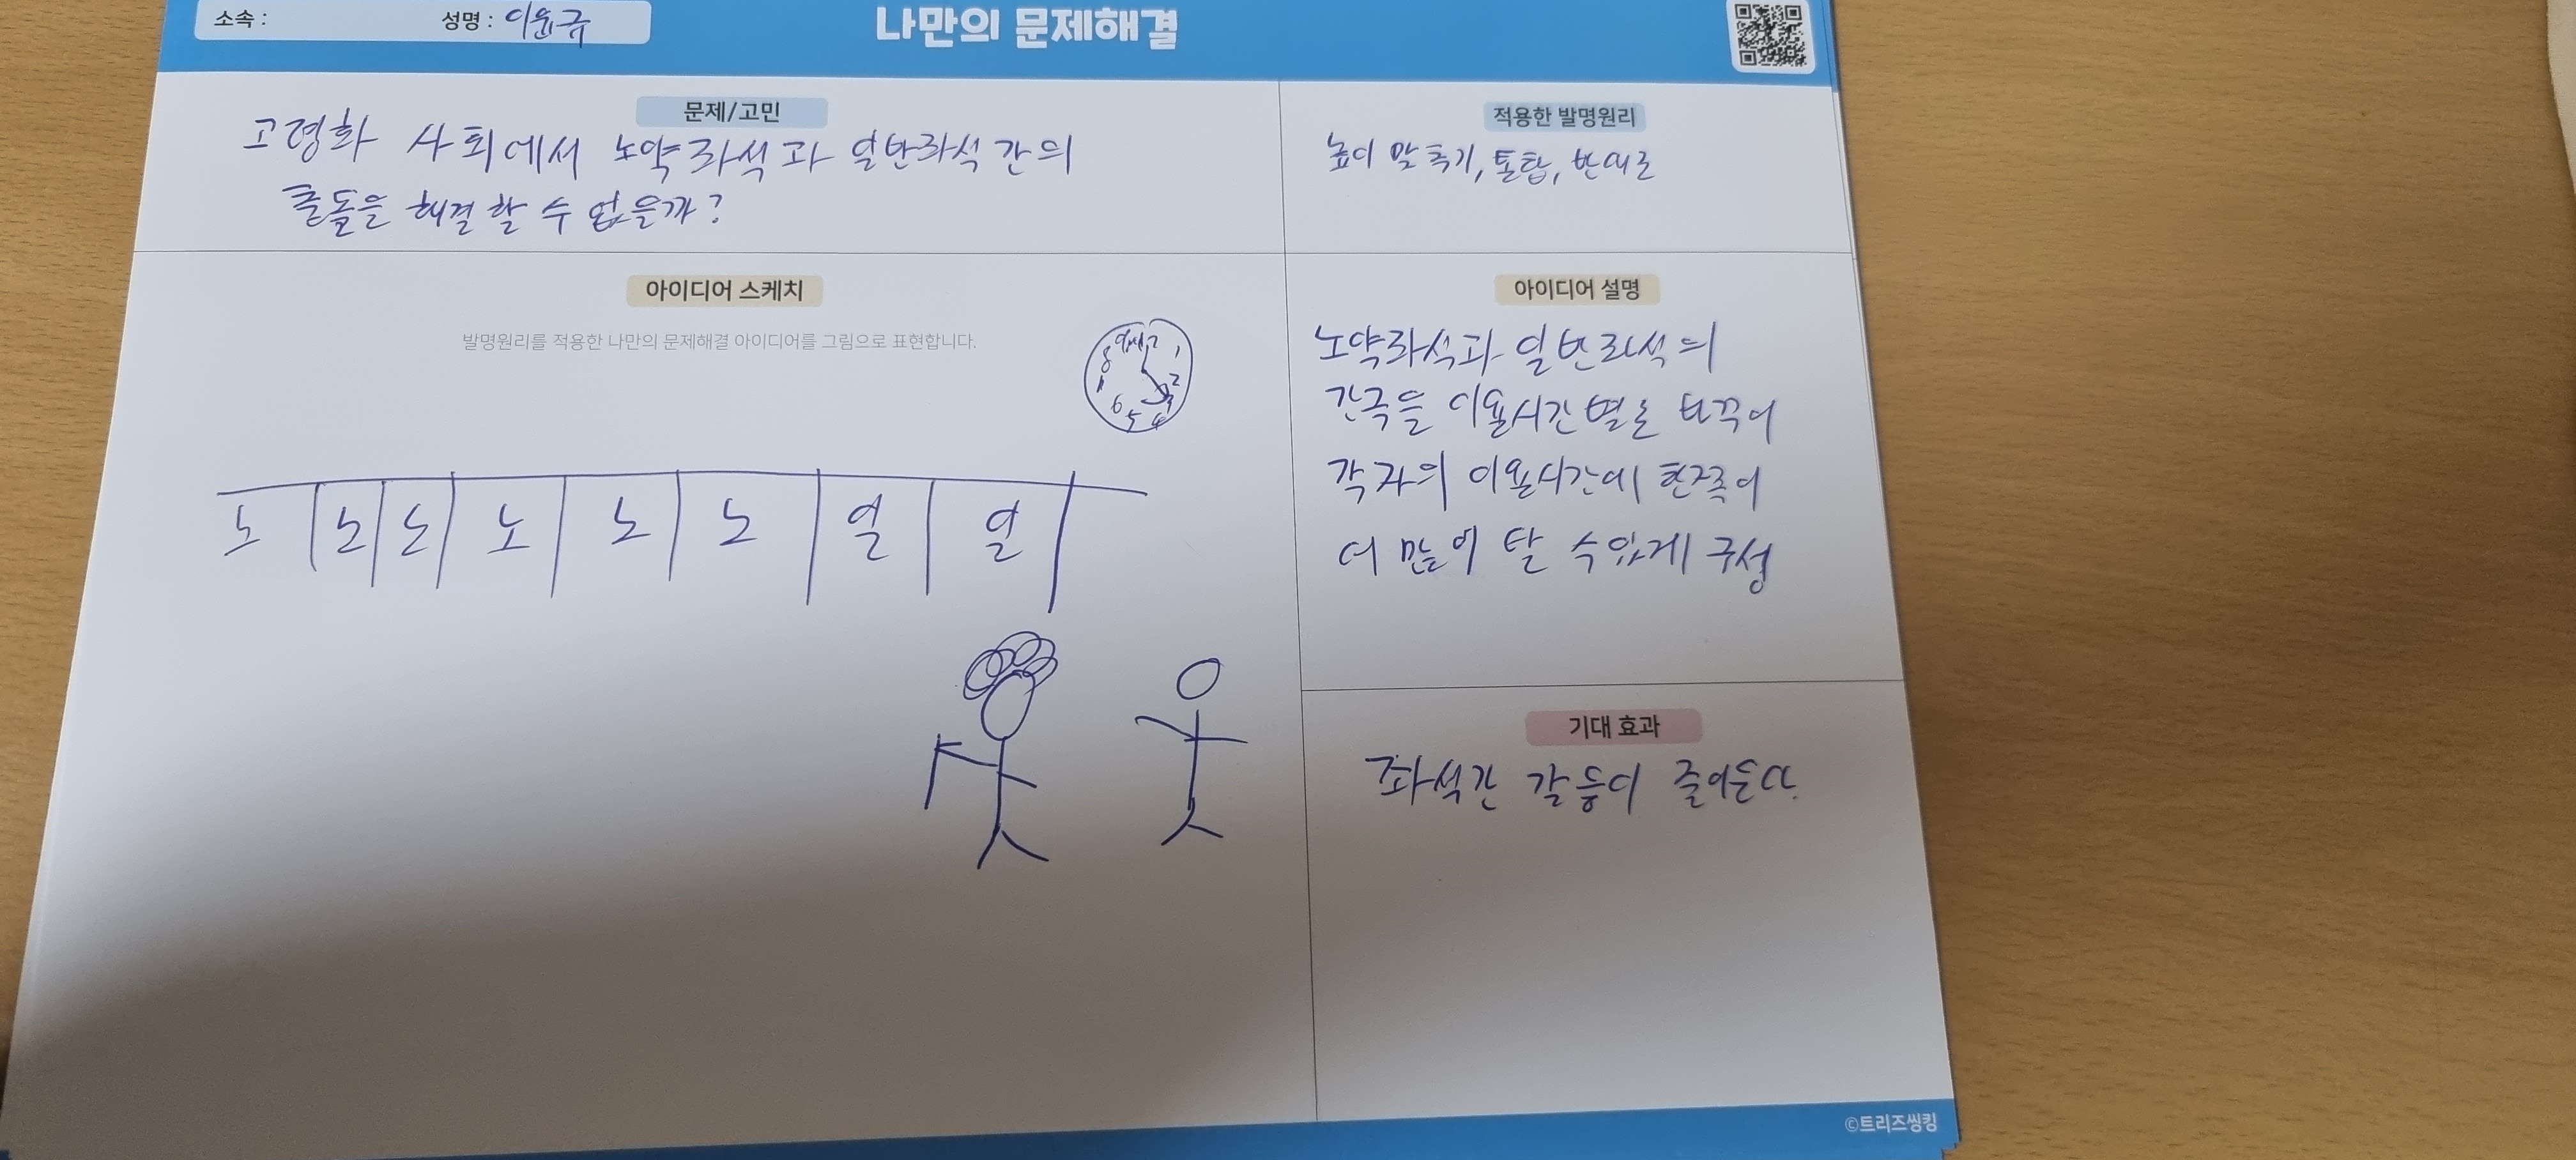 나만의 문제해결
소속 :
성명 : 이윤국
문제/고민
고령화 사회에서 노약좌석과 일반좌석 간의
을 해결할 수 없을까?
적용한 발명원리
높이 맞추기, 통합, 반대로
아이디어 스케치
발명원리를 적용한 나만의 문제해결 아이디어를 그림으로 표현합니다.
노 노 노 노 노 노 일 일
아이디어 설명
노약좌석과 일반좌석의
간극을 이용시간별로 바꿔
각자의 이용시간에 한쪽이
더 많이 탈 수 있게 구성
기대 효과
좌석간 갈등이 줄어든다.
©트리즈씽킹